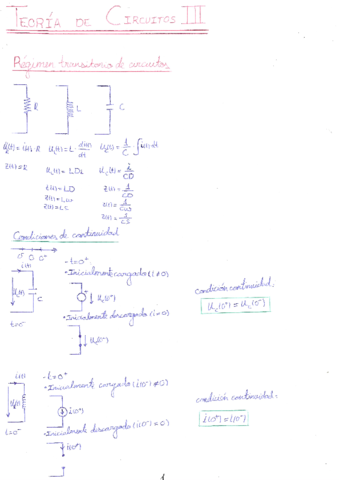 TEORÍA DE CIRCUITOS III
Régimen transitorio de circuitos
R
L
C
u(t) = i(t)·R
u_L(t) = L· di(t)/dt
u_c(t) = 1/C · ∫i(t) dt
Z(t) = R
u_L(t) = LDi
u_c(t) = i/CD
Z(t) = LD
Z(t) = 1/CD
Condiciones de continuidad
0⁻ 0 0⁺
i(t)
- t=0⁺
• Inicialmente cargada (i≠0)
C
u_c(0⁻)
t=0⁻
• Inicialmente descargada (i=0)
u_c(0⁺)
condición continuidad:
u_c(0⁺) = u_c(0⁻)
i(t)
- t=0⁺
• Inicialmente cargada (i(0⁻)≠0)
i(0⁺)
t=0⁻
• Inicialmente descargada (i(0⁻)=0)
i(0⁺)
condición continuidad:
i(0⁺) = i(0⁻)
1